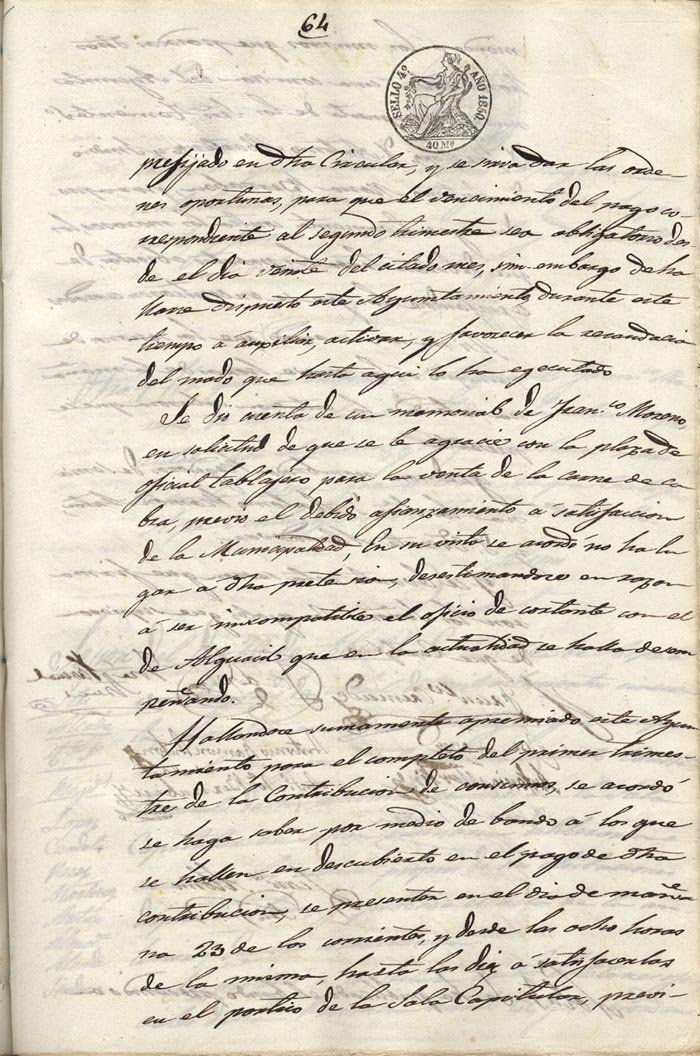 64
SELLO 4º. AÑO 1850
40 Ms
prefijado en dha Circular, y se sirva dar las orde
nes oportunas, para que el vencimiento del pago co-
rrespondiente al segundo trimestre sea obligatorio des
de el dia veinte del citado mes, sin embargo de ha
llarse dispuesto este Ayuntamiento, durante este
tiempo á auxiliar, activar, y favorecer la recaudacion
del modo que hasta aqui lo ha egecutado
Se dio cuenta de un memorial de Fran.co Moreno
en solicitud de que se le agracie con la plaza de
oficial tablagero para la venta de la carne de ca
bra, previo el debido afianzamiento a satisfaccion
de la Municipalidad En su vista se acordó no ha lu
gar a dha pretesion, desestimandose en razon
á ser incompatible el oficio de cortante con el
de Alguacil que en la actualidad se halla desem
peñando.
Hallandose sumamente apremiado este Ayun
tamiento para el completo del primer trimes-
tre de la Contribucion de consumos, se acordó
se haga saber por medio de bando á los que
se hallen en descubierto en el pago de dha
contribucion, se presenten en el dia de maña
na 23 de los corrientes, y desde las ocho horas
de la misma, hasta las diez á satisfacerlas
en el portico de la Sala Capitular, previ-